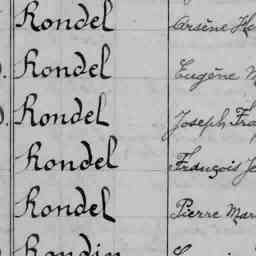 Rondel Arsène
Rondel Eugène
Rondel Joseph
Rondel François
Rondel Pierre
Rondin